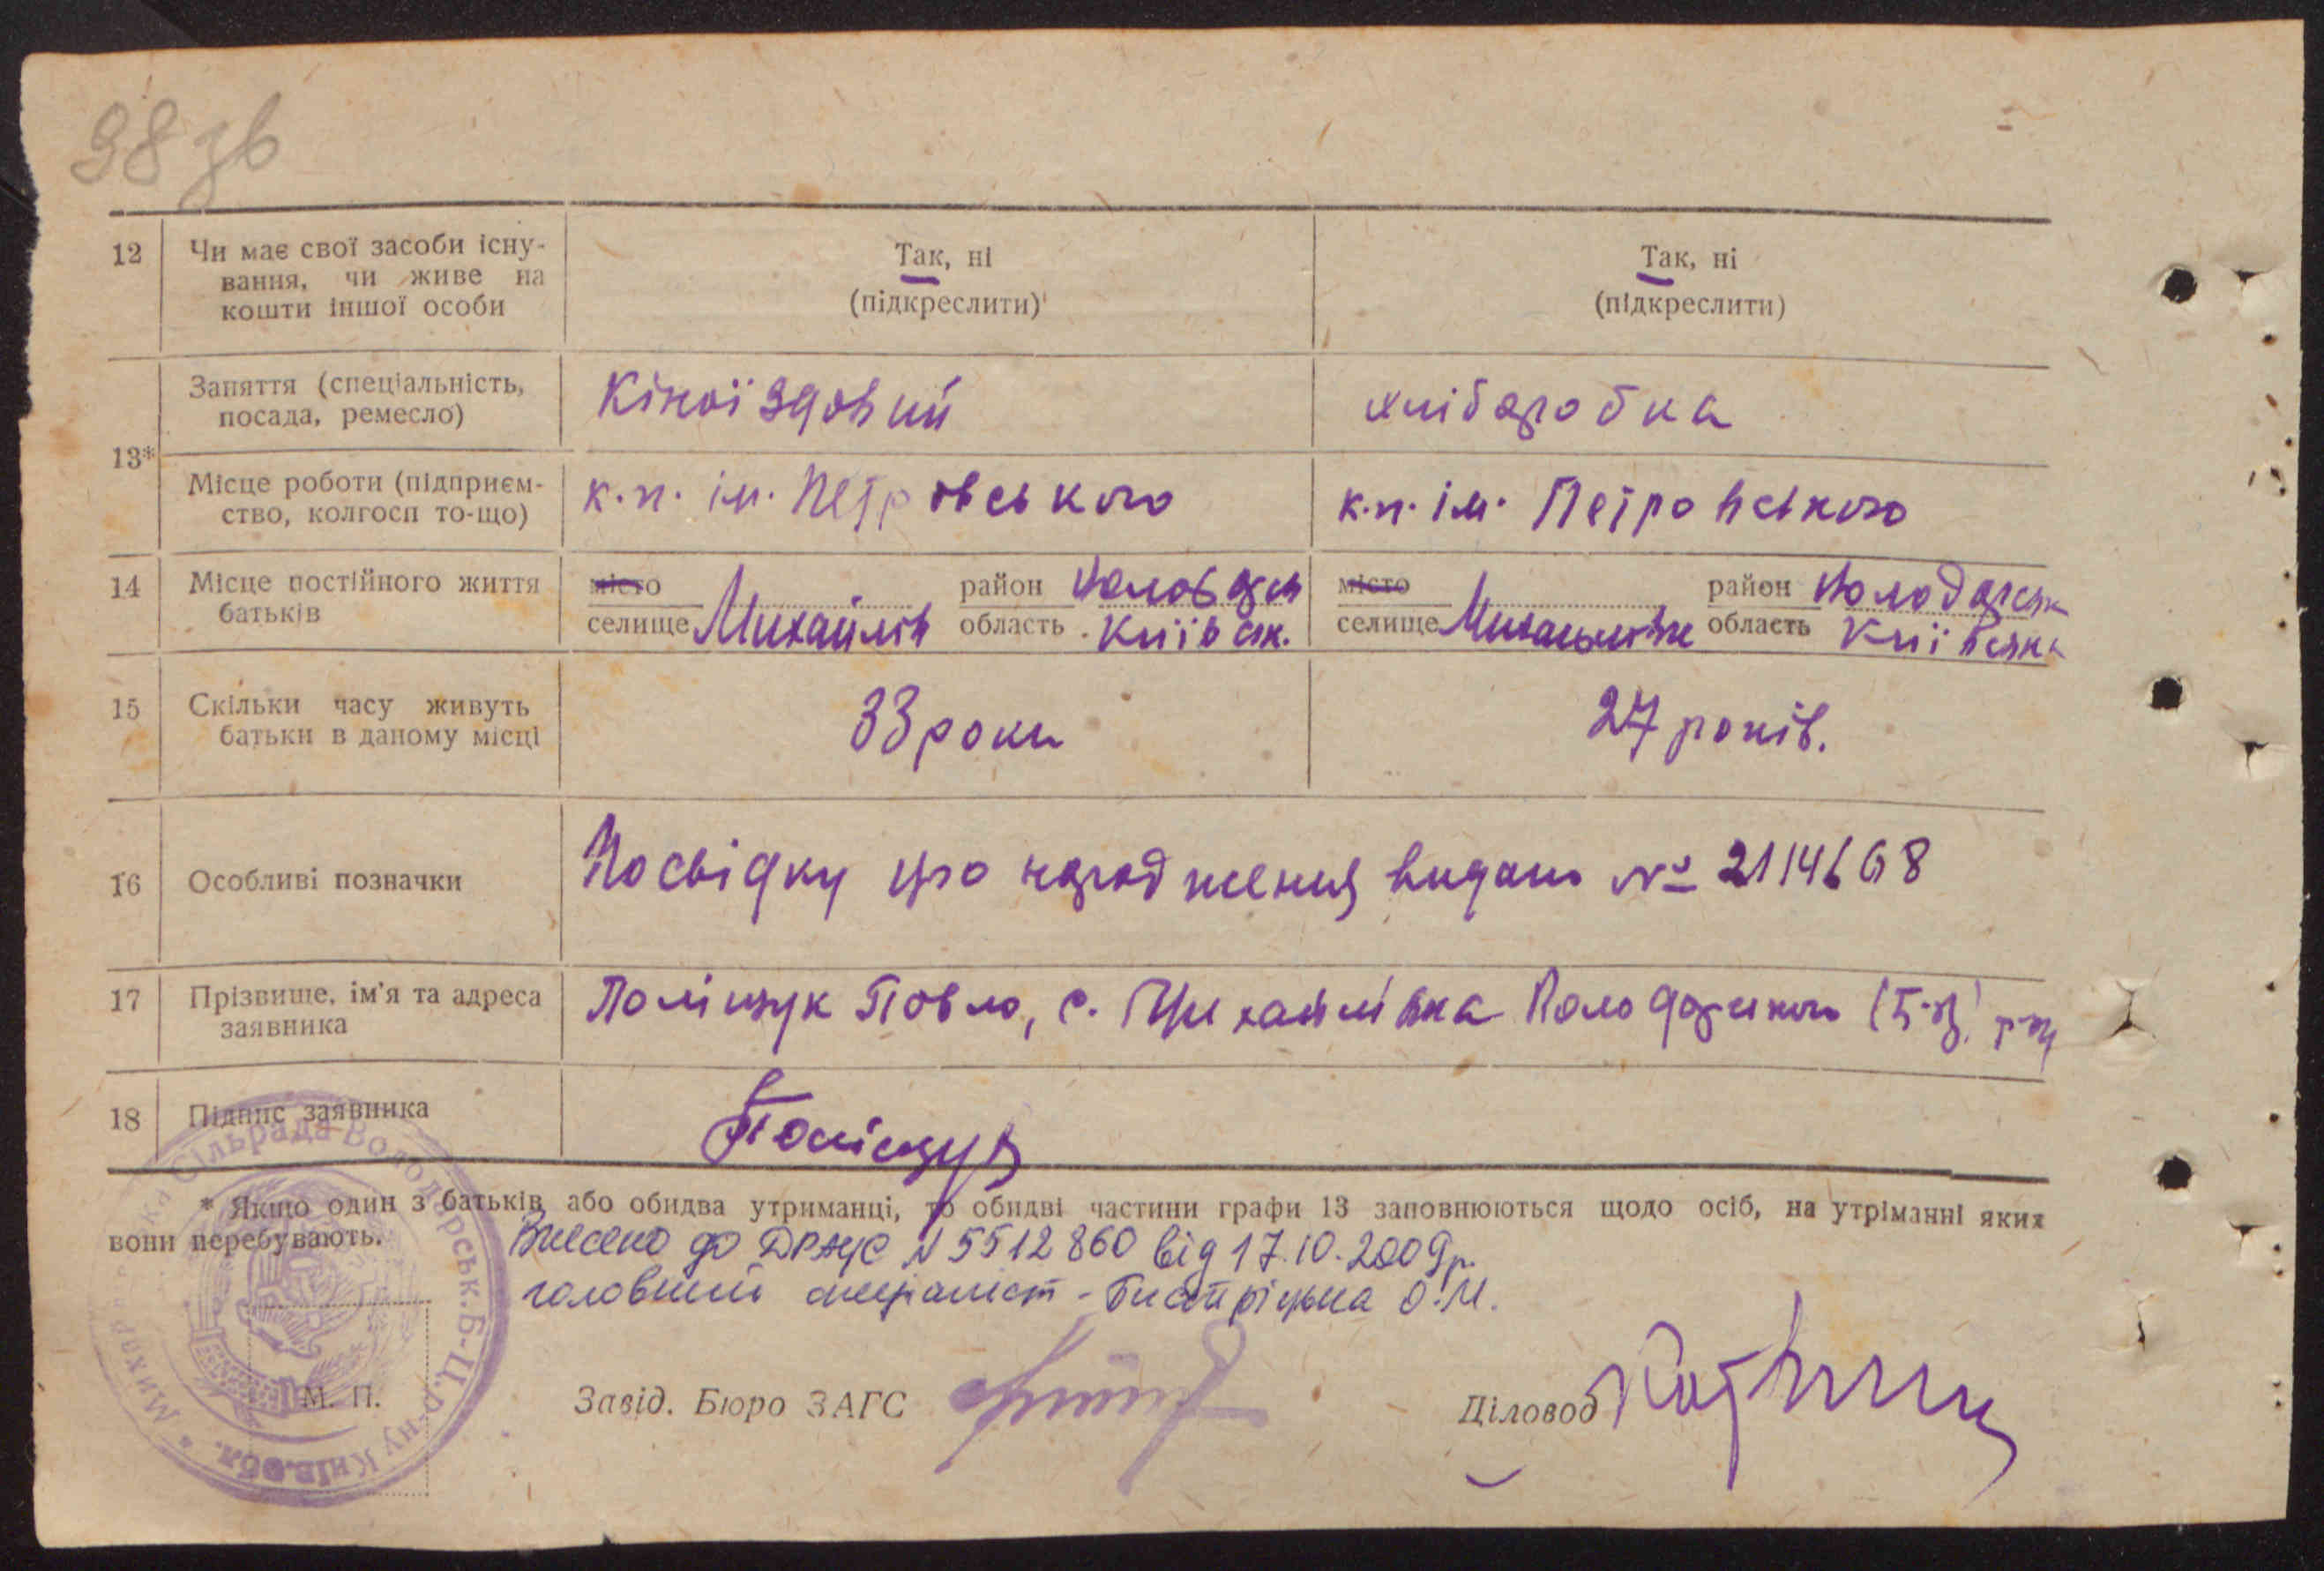 38 зв
12 Чи має свої засоби існу- Так, ні Так, ні
вання, чи живе на
кошти іншої особи (підкреслити) (підкреслити)
Заняття (спеціальність, Кіноїздовий хліборобка
посада, ремесло)
13*
Місце роботи (підприєм- к.п. ім. Петровського к.п. ім. Петровського
ство, колгосп то-що)
14 Місце постійного життя місто район Володарськ місто район Володарськ
батьків селище Михайлів область Київськ. селище Михайлівка область Київська
15 Скільки часу живуть 33 роки 27 років.
батьки в даному місці
16 Особливі позначки Посвідку про народження видано № 2114668
17 Прізвище, ім'я та адреса Поліщук Повло, с. Михайлівка Володарського (Б-Ц) р-ну
заявника
18 Підпис заявника Поліщук
* Якщо один з батьків або обидва утриманці, то обидві частини графи 13 заповнюються щодо осіб, на утріманні яких
вони перебувають.
Внесено до ДРАЦС N 5512860 від 17.10.2009р.
головний спеціаліст - Бистріцька О.М.
М. П. Завід. Бюро ЗАГС Діловод
Сільрада Володарськ. Б-Ц. р-ну Київ. обл.